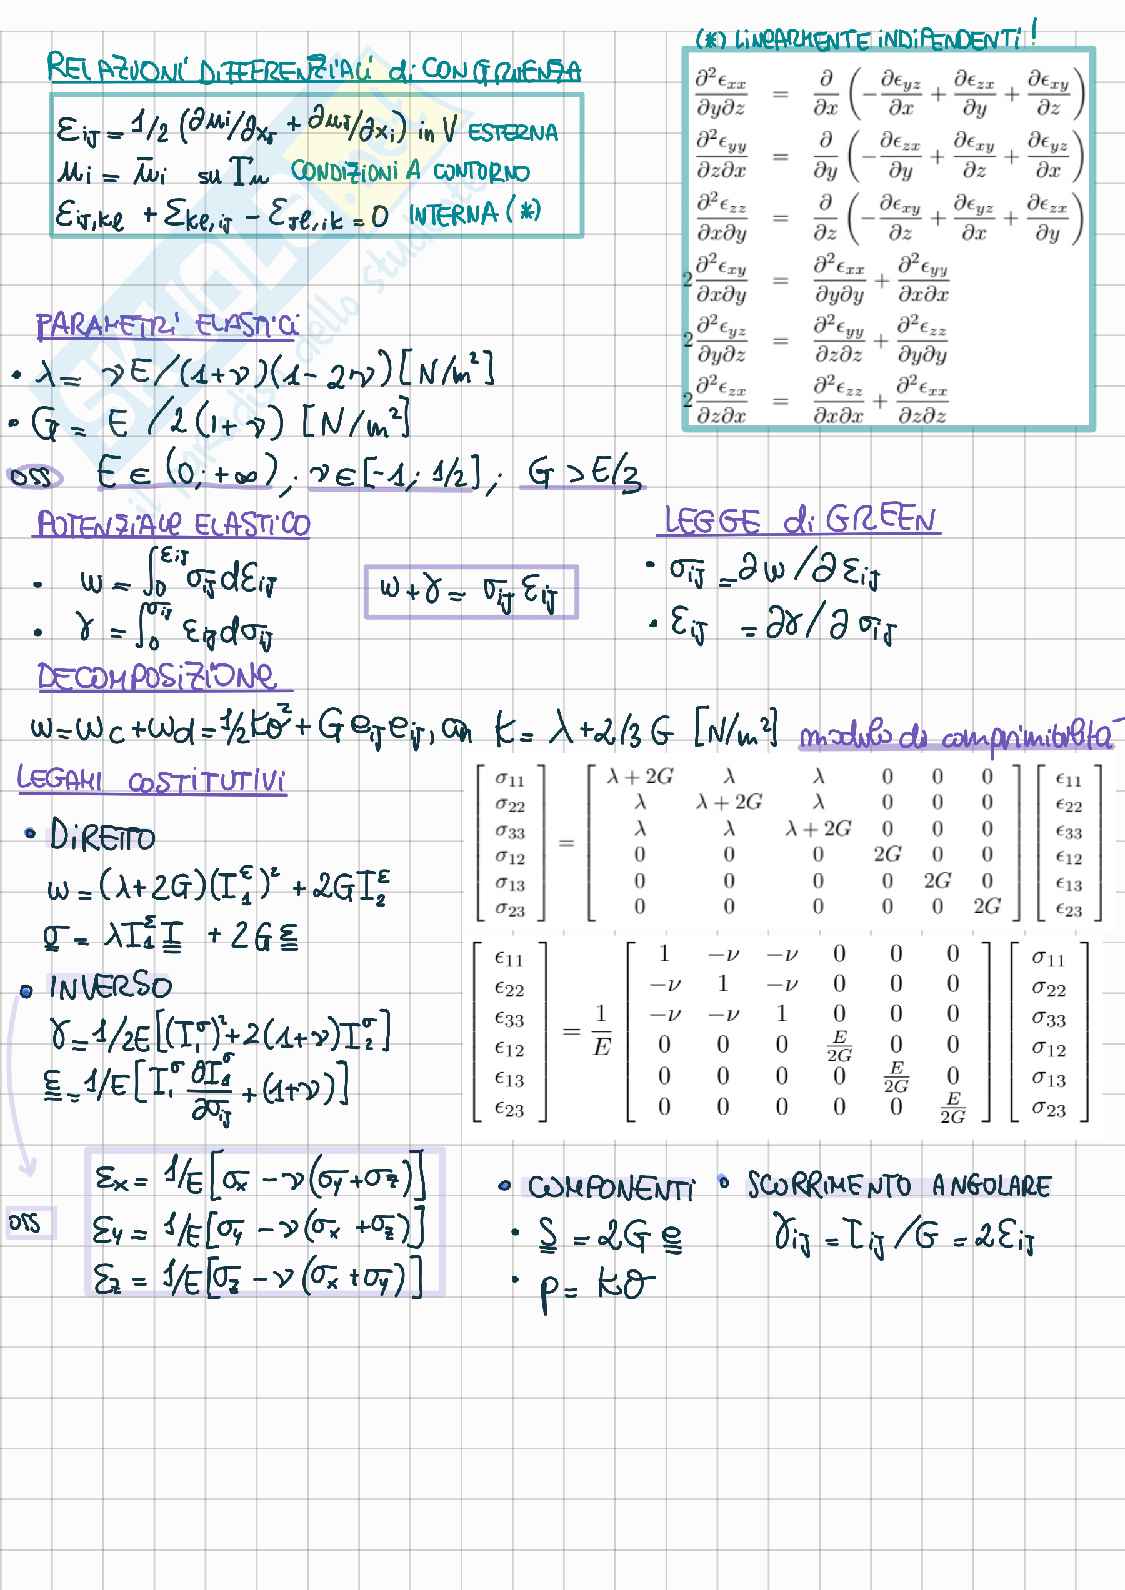 RELAZIONI DIFFERENZIALI di CONGRUENZA
εij = 1/2 (∂ui/∂xj + ∂uj/∂xi) in V ESTERNA
ui = ūi su Γu CONDIZIONI A CONTORNO
εij,kl + εkl,ij - εjl,ik = 0 INTERNA (*)
(*) LINEARMENTE INDIPENDENTI!
∂²ϵxx/∂y∂z = ∂/∂x (-∂ϵyz/∂x + ∂ϵzx/∂y + ∂ϵxy/∂z)
∂²ϵyy/∂z∂x = ∂/∂y (-∂ϵzx/∂y + ∂ϵxy/∂z + ∂ϵyz/∂x)
∂²ϵzz/∂x∂y = ∂/∂z (-∂ϵxy/∂z + ∂ϵyz/∂x + ∂ϵzx/∂y)
2 ∂²ϵxy/∂x∂y = ∂²ϵxx/∂y∂y + ∂²ϵyy/∂x∂x
2 ∂²ϵyz/∂y∂z = ∂²ϵyy/∂z∂z + ∂²ϵzz/∂y∂y
2 ∂²ϵzx/∂z∂x = ∂²ϵzz/∂x∂x + ∂²ϵxx/∂z∂z
PARAMETRI ELASTICI
• λ = νE/(1+ν)(1-2ν) [N/m²]
• G = E/2(1+ν) [N/m²]
oss E ∈ (0; +∞); ν ∈ [-1; 1/2]; G > E/3
POTENZIALE ELASTICO
• ω = ∫₀^εij σij dεij
• γ = ∫₀^σij εij dσij
ω + γ = σij εij
LEGGE di GREEN
• σij = ∂ω/∂εij
• εij = ∂γ/∂σij
DECOMPOSIZIONE
ω = ωc + ωd = 1/2 kθ² + G eij eij, con k = λ + 2/3 G [N/m²] modulo di comprimibilità
LEGAMI COSTITUTIVI
• DIRETTO
ω = (λ+2G)(I₁^ε)² + 2G I₂^ε
σ = λ I₁^ε I + 2G ε
• INVERSO
γ = 1/2E [(I₁^σ)² + 2(1+ν) I₂^σ]
ε = 1/E [I₁^σ ∂I₁^σ/∂σij + (1+ν)]
σ11 λ+2G λ λ 0 0 0 ϵ11
σ22 λ λ+2G λ 0 0 0 ϵ22
σ33 = λ λ λ+2G 0 0 0 ϵ33
σ12 0 0 0 2G 0 0 ϵ12
σ13 0 0 0 0 2G 0 ϵ13
σ23 0 0 0 0 0 2G ϵ23
ϵ11 1 -ν -ν 0 0 0 σ11
ϵ22 -ν 1 -ν 0 0 0 σ22
ϵ33 = 1/E -ν -ν 1 0 0 0 σ33
ϵ12 0 0 0 E/2G 0 0 σ12
ϵ13 0 0 0 0 E/2G 0 σ13
ϵ23 0 0 0 0 0 E/2G σ23
oss
εx = 1/E [σx - ν(σy + σz)]
εy = 1/E [σy - ν(σx + σz)]
εz = 1/E [σz - ν(σx + σy)]
• COMPONENTI
• S = 2G e
• p = kθ
• SCORRIMENTO ANGOLARE
γij = τij/G = 2εij